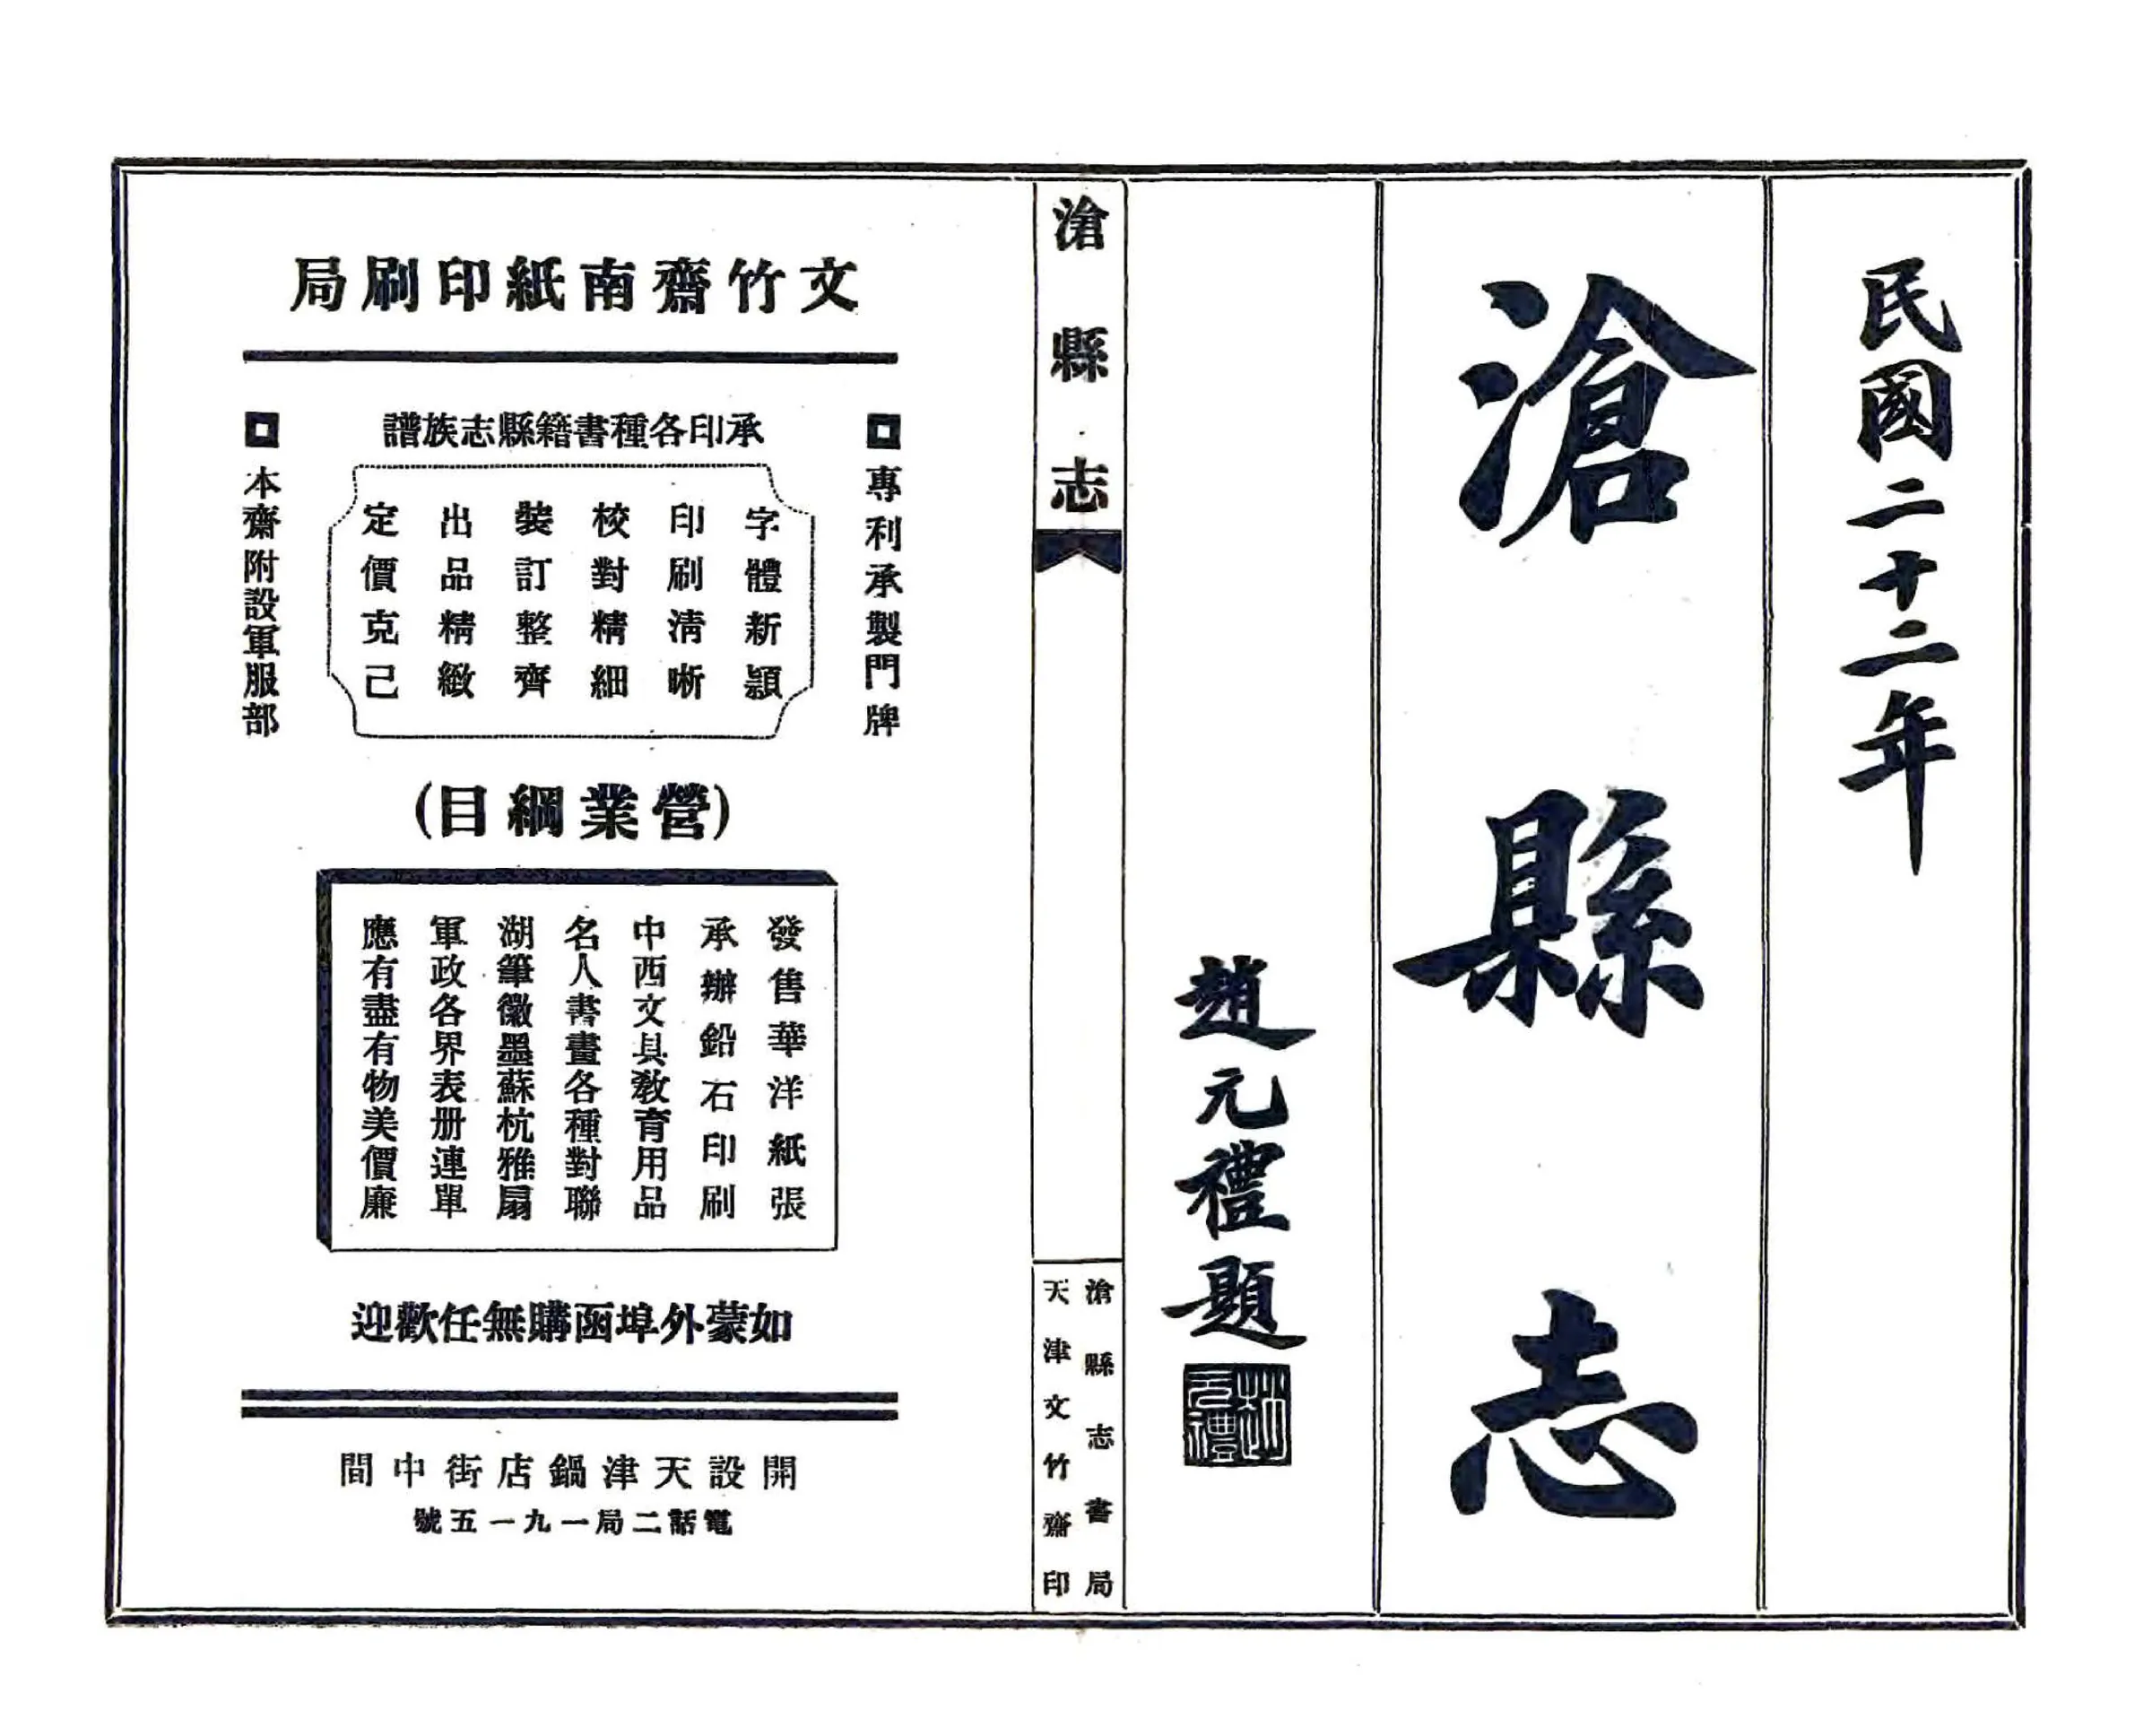 民國二十二年
滄縣志
趙元禮題
趙元禮
滄縣志
滄縣志書局
天津文竹齋印
文竹齋南紙印刷局
承印各種書籍縣志族譜
專利承製門牌
字體新穎
印刷清晰
校對精細
裝訂整齊
出品精緻
定價克己
本齋附設軍服部
(營業綱目)
發售華洋紙張
承辦鉛石印刷
中西文具教育用品
名人書畫各種對聯
湖筆徽墨蘇杭雅扇
軍政各界表册連單
應有盡有物美價廉
如蒙外埠函購無任歡迎
開設天津鍋店街中間
電話二局一九一五號